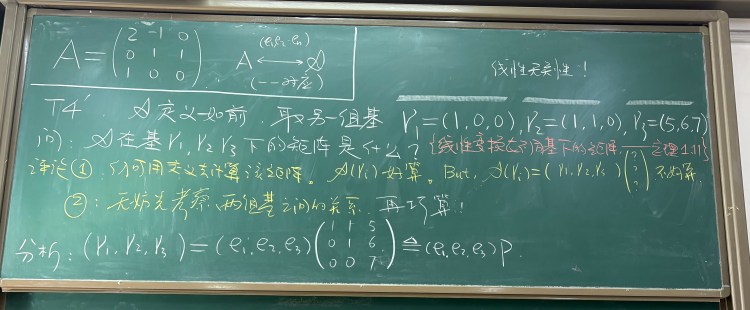 A = (2 -1 0
0 1 1
1 0 0). A ↔ 𝒜 (e₁,e₂…eₙ) (一一对应)
线性无关性!
T4'. 𝒜 定义如前. 取另一组基 γ₁=(1,0,0), γ₂=(1,1,0), γ₃=(5,6,7)
问: 𝒜在基γ₁,γ₂ γ₃下的矩阵是什么? {线性变换在不同基下的矩阵, 定理1.11}
评论①: 仍可用定义去计算该矩阵。𝒜(γᵢ)好算。But, 𝒜(γᵢ)=(γ₁,γ₂,γ₃)(? ? ?) 不好算
②: 无妨先考察, 两组基之间的关系. 再巧算!
分析: (γ₁,γ₂,γ₃)=(e₁,e₂,e₃)(1 1 5
0 1 6
0 0 7) ≜(e₁,e₂,e₃)P.